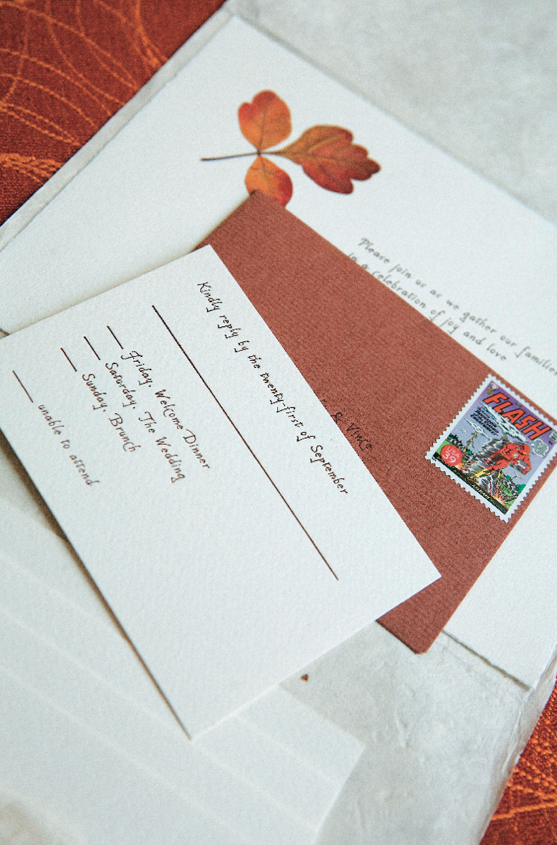 Please join us as we gather our families
in a celebration of joy and love
& Vince
FLASH
39
Kindly reply by the twenty-first of September
Friday. Welcome Dinner
Saturday. The Wedding
Sunday. Brunch
unable to attend